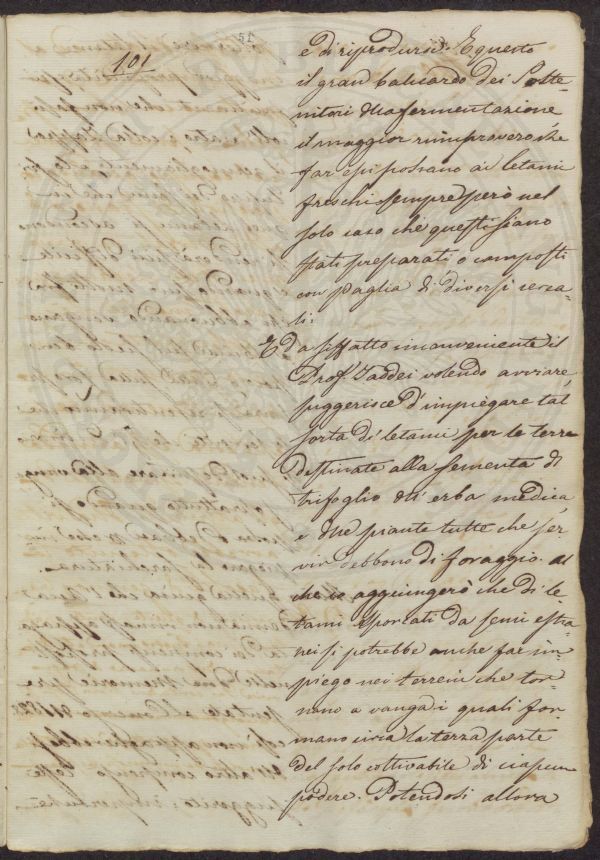 101
e di riprodursi. E questo
il gran baluardo dei Soste-
nitori della fermentazione
il maggior rimprovero che
far essi possano ai letami
freschi sempre però nel
solo caso che questi siano
stati preparati o composti
con paglia di diversi cerea-
li.
E da siffatto inconveniente il
Prof. Taddei volendo avviare,
suggerisce d'impiegare tal
sorta di letami per le terre
destinate alla sementa di
trifoglio di erba medica,
e piante tutte che ser
vir debbono di foraggio. al
che io aggiungerò che di le-
tami sporcati da semi estra-
nei si potrebbe anche far im-
piego nei terreni che tor-
nano a vanga i quali for-
mano circa la terza parte
del solo coltivabile di ciascun
podere. Potendosi allora